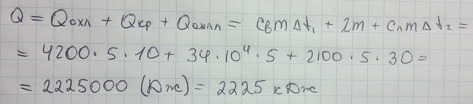 Q = Qохл + Qкр + Qохлл = cвmΔt₁ + λm + cлmΔt₂ =
= 4200·5·10 + 34·10⁴·5 + 2100·5·30 =
= 2225000 (Дж) = 2225 кДж